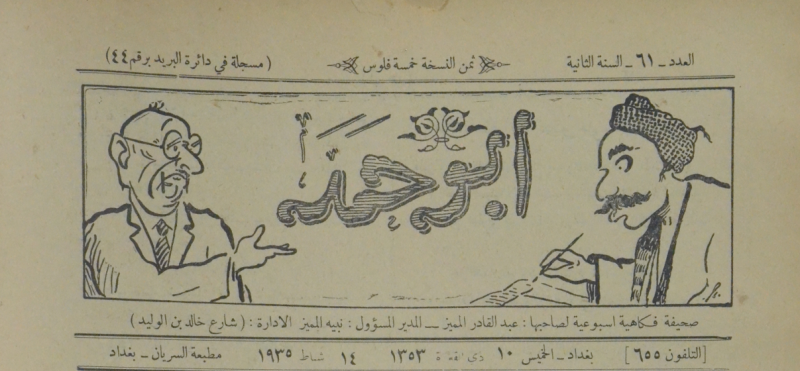 العدد - ٦١ - السنة الثانية ثمن النسخة خمسة فلوس (مسجلة في دائرة البريد برقم ٤٤)
أبو حمد
صحيفة فكاهية اسبوعية لصاحبها : عبد القادر المميز — المدير المسؤول : نبيه المميز الادارة : (شارع خالد بن الوليد)
[التلفون ٦٥٥] بغداد - الخميس ١٠ ذي القعدة ١٣٥٣ ١٤ شباط ١٩٣٥ مطبعة السريان - بغداد